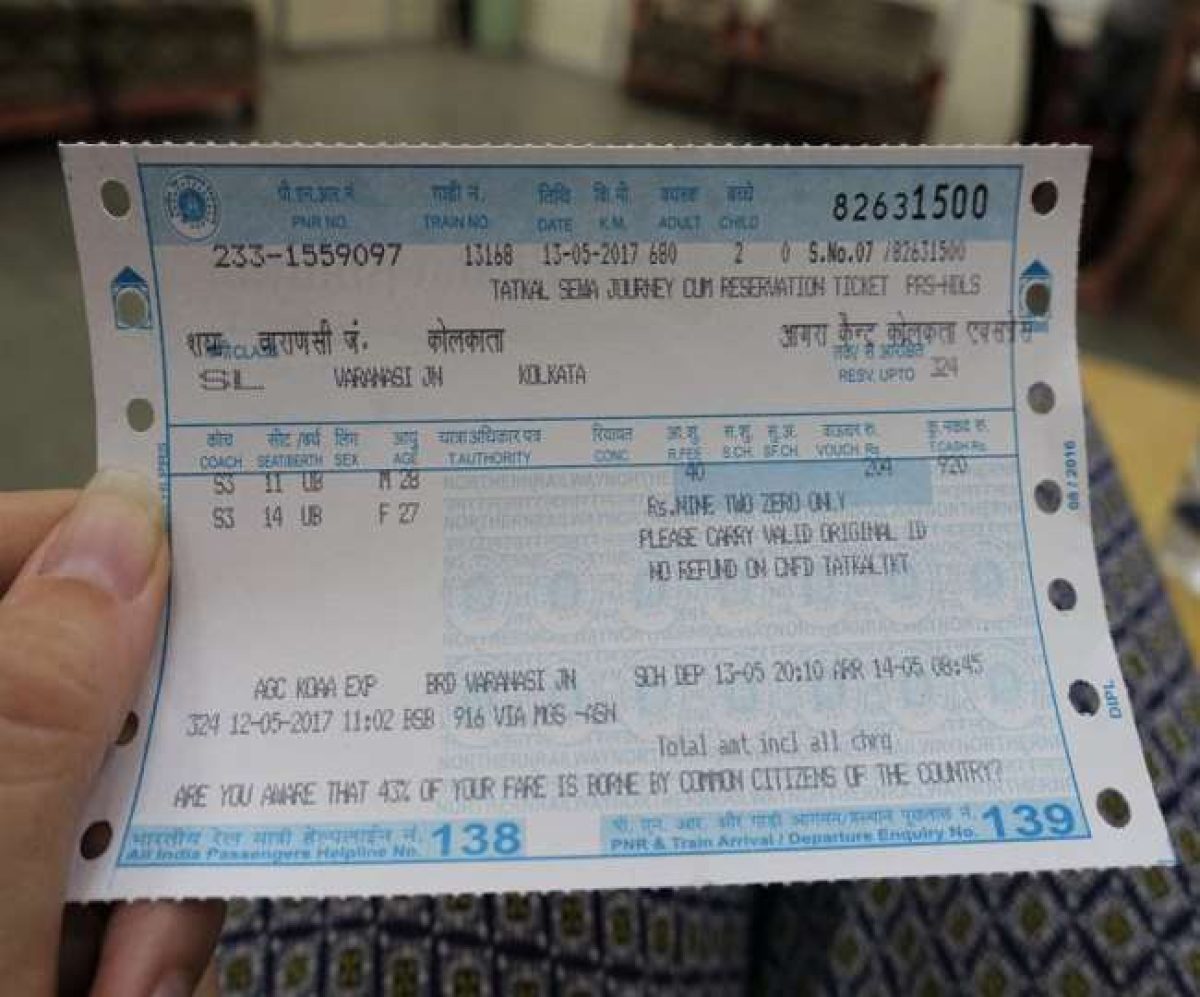 पी.एन.आर.नं. गाड़ी नं. तिथि कि.मी. वयस्क बच्चे 82631500
PNR NO. TRAIN NO. DATE K.M. ADULT CHILD
233-1559097 13168 13-05-2017 680 2 0 S.No.07 /82631500
TATKAL SEWA JOURNEY CUM RESERVATION TICKET PRS-HDLS
शया वाराणसी जं. कोलकाता आगरा कैन्ट कोलकता एक्सप्रेस
CLASS
SL VARANASI JN KOLKATA RESV. UPTO 324
कोच सीट/बर्थ लिंग आयु यात्रा अधिकार पत्र रियायत आ.शु. स.शु. सु.अ. वाऊचर रु. कु.नकद रु.
COACH SEAT/BERTH SEX AGE T.AUTHORITY CONC. R.FEE S.CH. SF.CH. VOUCH Rs. T.CASH Rs.
S3 11 UB M 28 40 204 920
S3 14 UB F 27 Rs.NINE TWO ZERO ONLY
PLEASE CARRY VALID ORIGINAL ID
NO REFUND ON CNFD TATKALTKT
AGC KOAA EXP BRD VARANASI JN SCH DEP 13-05 20:10 ARR 14-05 08:45
324 12-05-2017 11:02 BSB 916 VIA MGS -ASN
Total amt incl all chrg
ARE YOU AWARE THAT 43% OF YOUR FARE IS BORNE BY COMMON CITIZENS OF THE COUNTRY?
भारतीय रेल यात्री हेल्पलाईन नं. 138
All India Passengers Helpline No.
पी. एन. आर. और गाड़ी आगमन/प्रस्थान पूछताछ नं. 139
PNR & Train Arrival / Departure Enquiry No.
08 / 2016
DIPL